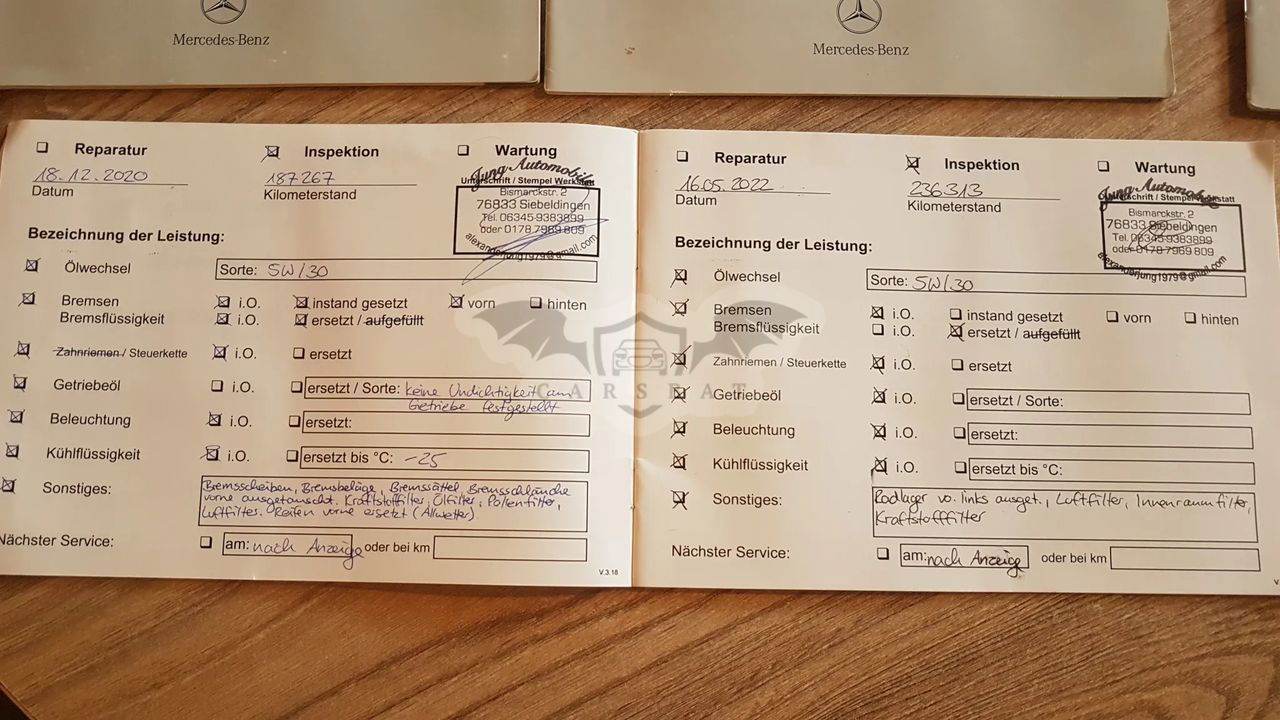 Mercedes-Benz
Mercedes-Benz
Reparatur
Inspektion
Wartung
18.12.2020
187267
Datum
Kilometerstand
Unterschrift / Stempel Werkstatt
Jung Automobile
Bismarckstr. 2
76833 Siebeldingen
Tel. 06345 9383899
oder 0178 7969 809
alexanderjung1979@gmail.com
Bezeichnung der Leistung:
Ölwechsel
Sorte: 5W/30
Bremsen i.O. instand gesetzt vorn hinten
Bremsflüssigkeit i.O. ersetzt / aufgefüllt
Zahnriemen / Steuerkette i.O. ersetzt
Getriebeöl i.O. ersetzt / Sorte: keine Undichtigkeit am
Getriebe festgestellt
Beleuchtung i.O. ersetzt:
Kühlflüssigkeit i.O. ersetzt bis °C: -25
Sonstiges: Bremsscheiben, Bremsbeläge, Bremssättel Bremsschläuche
vorne ausgetauscht. Kraftstofffilter, Ölfilter, Pollenfilter,
Luftfilter. Reifen vorne ersetzt (Allwetter).
Nächster Service: am: nach Anzeige oder bei km
V.3.18
Reparatur
Inspektion
Wartung
16.05.2022
236313
Datum
Kilometerstand
Unterschrift / Stempel Werkstatt
Jung Automobile
Bismarckstr. 2
76833 Siebeldingen
Tel. 06345 9383899
oder 0178 7969 809
alexanderjung1979@gmail.com
Bezeichnung der Leistung:
Ölwechsel
Sorte: 5W/30
Bremsen i.O. instand gesetzt vorn hinten
Bremsflüssigkeit i.O. ersetzt / aufgefüllt
Zahnriemen / Steuerkette i.O. ersetzt
Getriebeöl i.O. ersetzt / Sorte:
Beleuchtung i.O. ersetzt:
Kühlflüssigkeit i.O. ersetzt bis °C:
Sonstiges: Radlager vo. links ausget., Luftfilter, Innenraumfilter,
Kraftstofffilter
Nächster Service: am: nach Anzeige oder bei km
CARSBAT